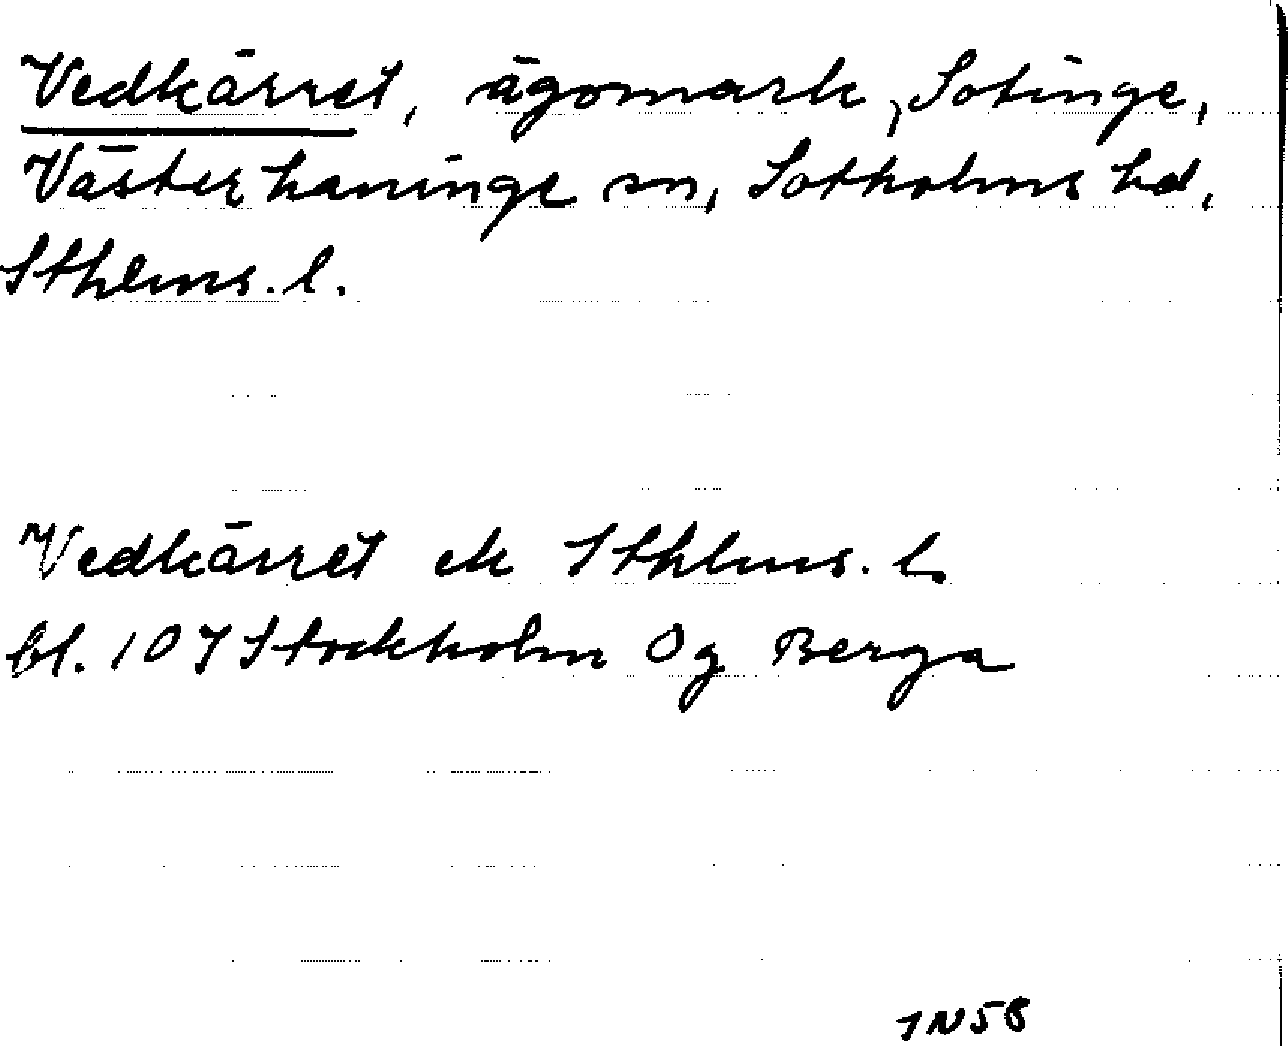 Vedkärret, ägomark, Sotinge,
Västerhaninge sn, Sotholms hd,
Sthlms. l.
Vedkärret ek Sthlms. l.
bl. 107 Stockholm Og Berga
IN58